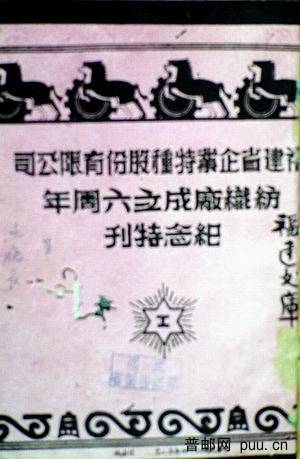 福建省企業特種股份有限公司
紡織廠成立六周年
紀念特刊
福建文庫
工
普邮网 puu.cn